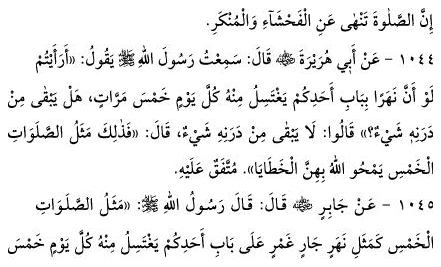 إِنَّ الصَّلٰوةَ تَنْهٰى عَنِ الْفَحْشَآءِ وَالْمُنْكَرِ.
١٠٤٤ - عَنْ أَبِي هُرَيْرَةَ ﷺ قَالَ: سَمِعْتُ رَسُولَ اللهِ ﷺ يَقُولُ: «أَرَأَيْتُمْ
لَوْ أَنَّ نَهَرًا بِبَابِ أَحَدِكُمْ يَغْتَسِلُ مِنْهُ كُلَّ يَوْمٍ خَمْسَ مَرَّاتٍ، هَلْ يَبْقٰى مِنْ
دَرَنِهِ شَيْءٌ؟» قَالُوا: لَا يَبْقٰى مِنْ دَرَنِهِ شَيْءٌ، قَالَ: «فَذٰلِكَ مَثَلُ الصَّلَوَاتِ
الْخَمْسِ يَمْحُو اللهُ بِهِنَّ الْخَطَايَا». مُتَّفَقٌ عَلَيْهِ.
١٠٤٥ - عَنْ جَابِرٍ ﷺ قَالَ: قَالَ رَسُولُ اللهِ ﷺ: «مَثَلُ الصَّلَوَاتِ
الْخَمْسِ كَمَثَلِ نَهَرٍ جَارٍ غَمْرٍ عَلَى بَابِ أَحَدِكُمْ يَغْتَسِلُ مِنْهُ كُلَّ يَوْمٍ خَمْسَ